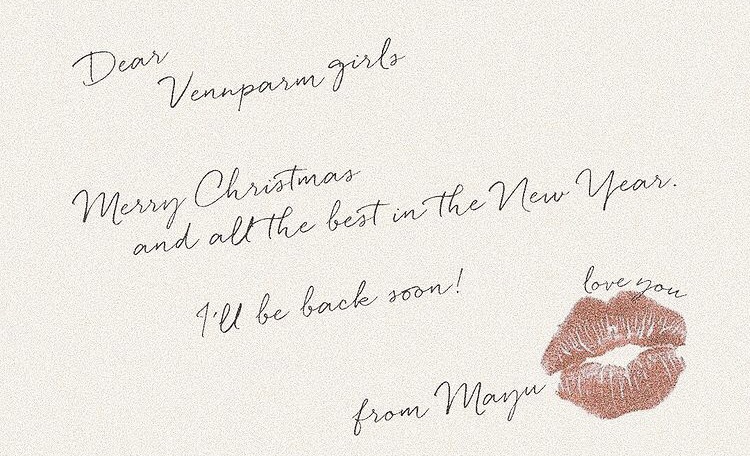 Dear
Vennparm girls
Merry Christmas
and all the best in the New Year.
I'll be back soon!
love you
from Mayu